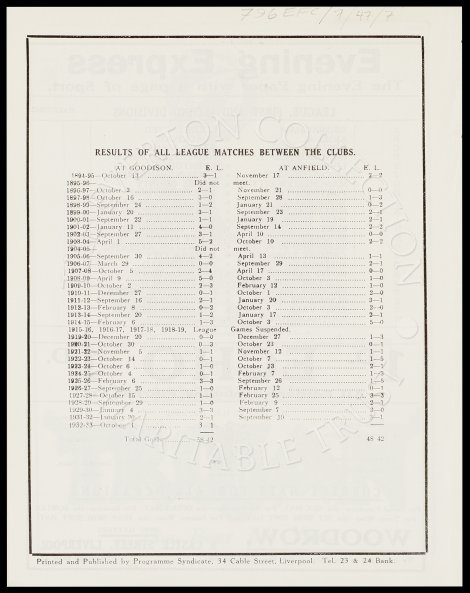 796 EFC/1/47/7
RESULTS OF ALL LEAGUE MATCHES BETWEEN THE CLUBS.
AT GOODISON. E. L. AT ANFIELD. E. L.
1894-95—October 13 3—1 November 17 2—2
1895-96— Did not meet.
1896-97—October 3 2—1 November 21 0—0
1897-98—October 16 3—0 September 28 1—3
1898-99—September 24 1—2 January 21 0—2
1899-00—January 20 3—1 September 23 2—1
1900-01—September 22 1—1 January 19 2—1
1901-02—January 11 4—0 September 14 2—2
1902-03—September 27 3—1 April 10 0—0
1903-04—April 1 5—2 October 10 2—2
1904-05— Did not meet.
1905-06—September 30 4—2 April 13 1—1
1906-07—March 29 September 29
1907-08—October 5 2—4 April 17 0—0
1908-09—April 9 October 3 1—0
1909-10—October 2 2—3 February 12 1—0
1910-11—December 27 October 1 2—0
1911-12—September 16 2—1 January 20 3—1
1912-13—February 8 October 5 2—0
1913-14—September 20 1—2 January 17 2—1
1914-15—February 6 1—3 October 3 5—0
1915-16, 1916-17, 1917-18, 1918-19, League Games Suspended.
1919-20—December 20 0—0 December 27 1—3
1920-21—October 30 0—3 October 23 0—1
1921-22—November 5 1—1 November 12 1—1
1922-23—October 14 0—1 October 7 1—5
1923-24—October 6 1—0 October 13 2—1
1924-25—October 4 0—1 February 7 1—3
1925-26—February 6 3—3 September 26 1—5
1926-27—September 25 1—0 February 12 0—1
1927-28—October 15 1—1 February 25 3—3
1928-29—September 29 1—0 February 9 2—1
1929-30—January 4 3—3 September 7
1931-32—January 30 2—1 September 19 3—1
1932-33—October 1 3—1
Total Goals 58 42 48 42
Printed and Published by Programme Syndicate, 34 Cable Street, Liverpool. Tel. 23 & 24 Bank.